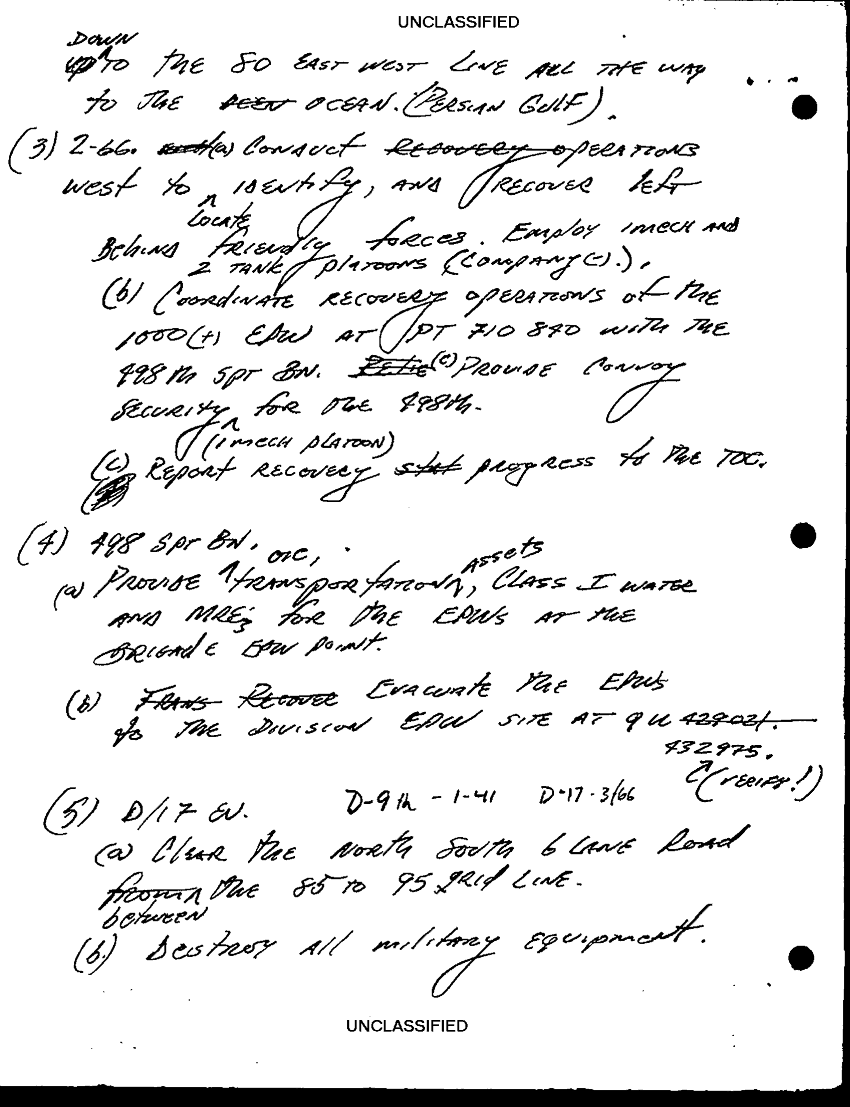 UNCLASSIFIED
DOWN
up TO THE 80 EAST WEST LINE ALL THE WAY
to THE OCEAN. (PERSIAN GULF).
(3) 2-66. (a) CONDUCT RECOVERY OPERATIONS
WEST to IDENTIFY, AND RECOVER left
LOCATE
BEHIND friENDLY forces. Employ 1 MECH AND
2 TANK PLATOONS (COMPANY(-).).
(b) COORDINATE RECOVERY OPERATIONS of the
1000(+) EPW AT PT 710 840 WITH THE
498th SPT BN. (c) PROVIDE CONVOY
SECURITY for the 498th.
(1 MECH PLATOON)
(c) REPORT RECOVERY stat progress to THE TOC.
(4) 498 SPT BN.
OIC, ASSETS
(a) PROVIDE TRANSPORTATION, CLASS I WATER
AND MRE's for the EPWs AT the
BRIGADE EPW POINT.
(b) TRANS RECOVER EVACUATE THE EPWs
to THE DIVISION EPW SITE AT QU 429021.
432975.
(VERIFY!)
(5) D/17 EN. D-9th - 1-41 D-17-3/66
(a) CLEAR the NORTH SOUTH 6 LANE ROAD
from the 85 to 95 grid LINE.
between
(b.) DESTROY All military EQUIPMENT.
UNCLASSIFIED